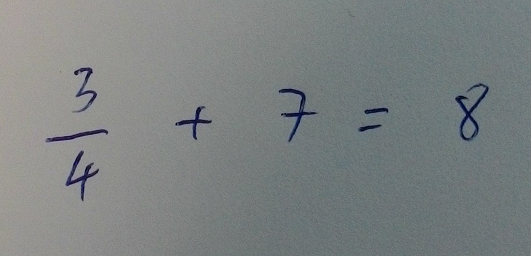 3/4 + 7 = 8